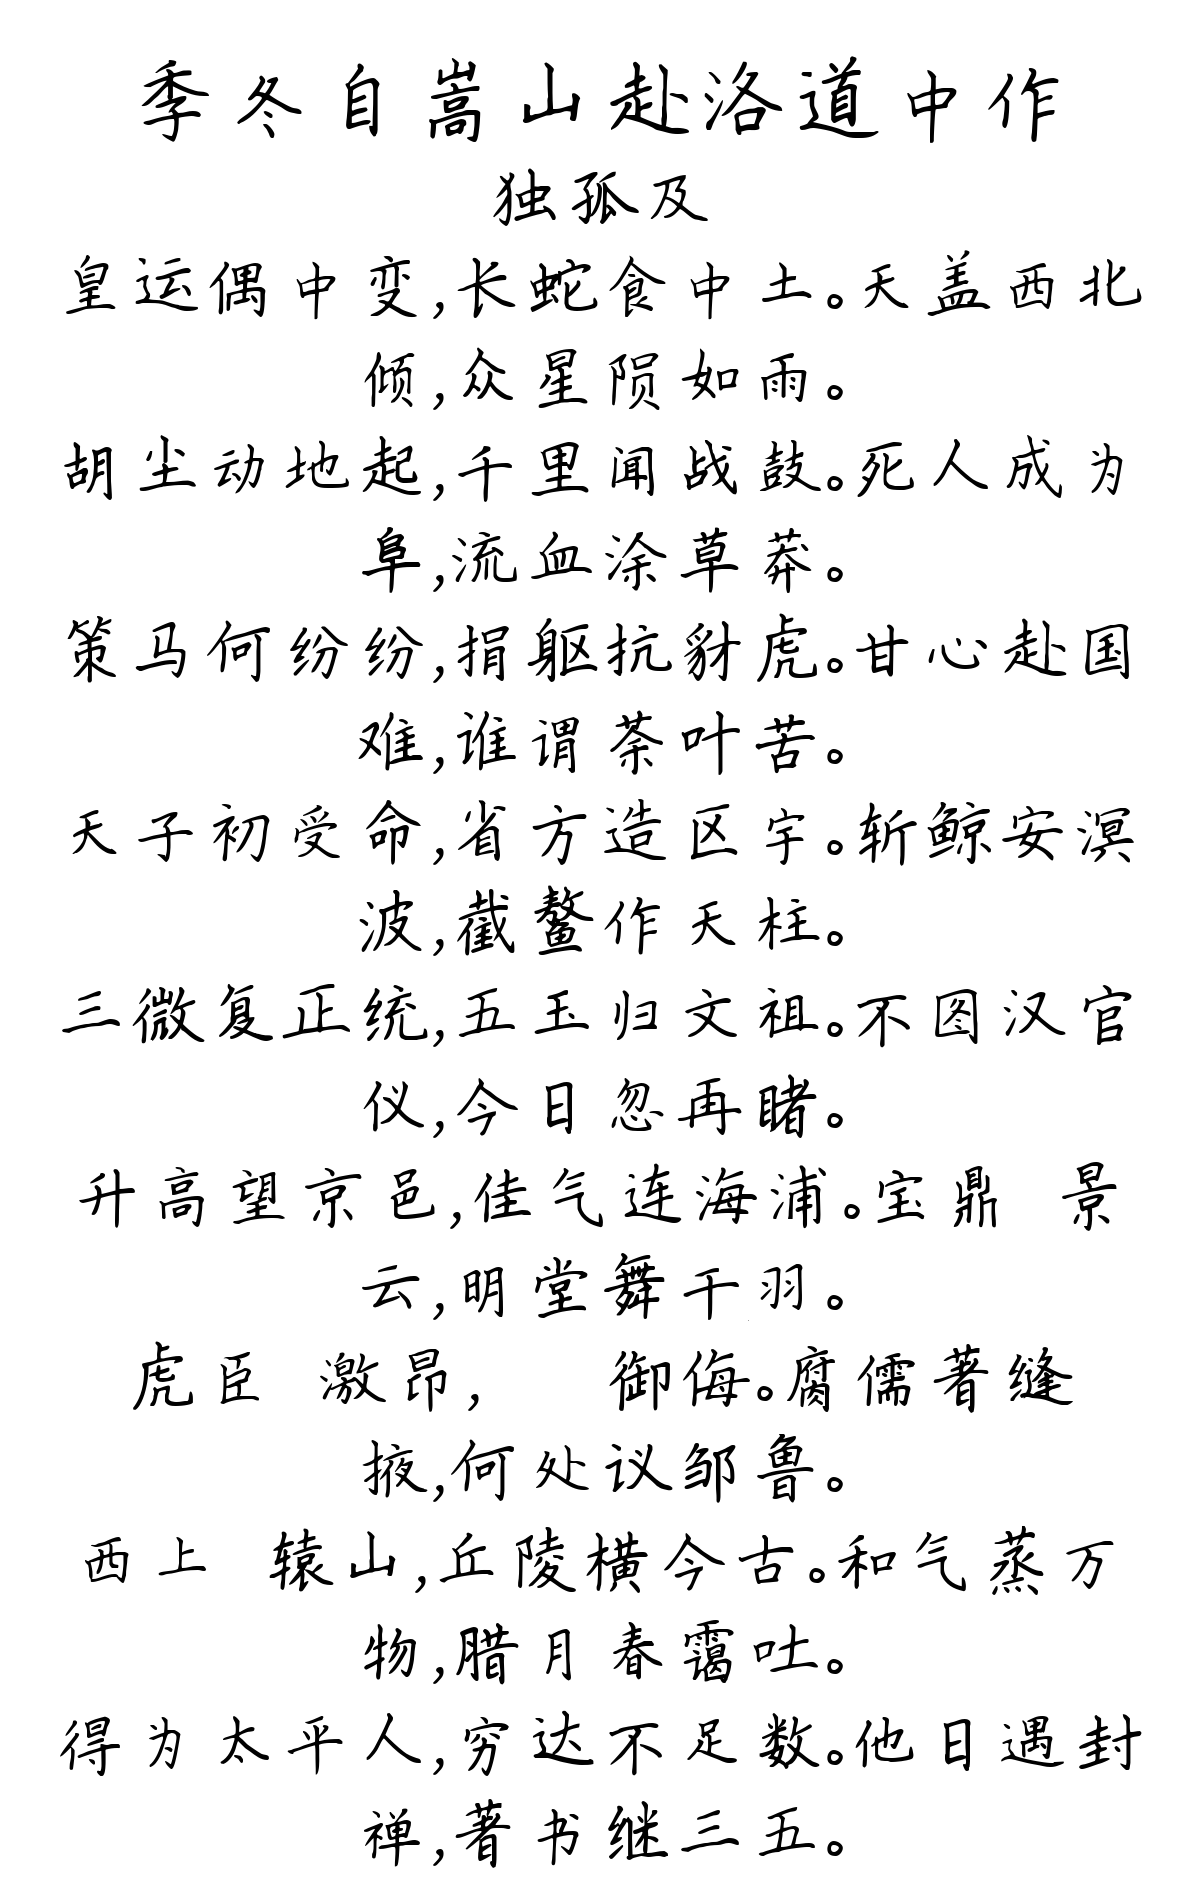 季冬自嵩山赴洛道中作
独孤及
皇运偶中变,长蛇食中土。天盖西北
倾,众星陨如雨。
胡尘动地起,千里闻战鼓。死人成为
阜,流血涂草莽。
策马何纷纷,捐躯抗豺虎。甘心赴国
难,谁谓荼叶苦。
天子初受命,省方造区宇。斩鲸安溟
波,截鳌作天柱。
三微复正统,五玉归文祖。不图汉官
仪,今日忽再睹。
升高望京邑,佳气连海浦。宝鼎 景
云,明堂舞干羽。
虎臣 激昂, 御侮。腐儒著缝
掖,何处议邹鲁。
西上 辕山,丘陵横今古。和气蒸万
物,腊月春霭吐。
得为太平人,穷达不足数。他日遇封
禅,著书继三五。